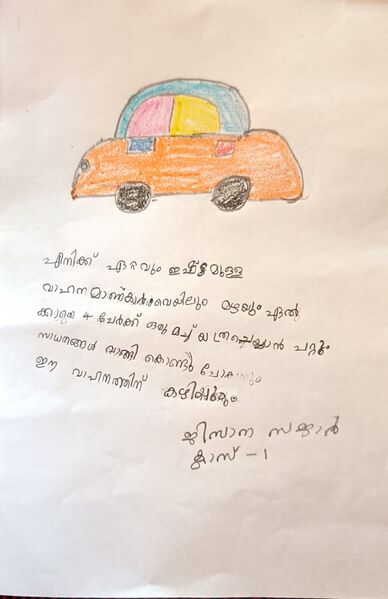 എനിക്ക് ഏറ്റവും ഇഷ്ട്ടമുള്ള
വാഹനമാണ്കാർവെയിലും മഴയും ഏൽ
ക്കാതെ 4 പേർക്ക് ഒരുമിച്ച് യാത്രചെയ്യാൻ പറ്റും
സാധനങ്ങൾ വാങ്ങി കൊണ്ടു പോകാനും
ഈ വാഹനത്തിന് കഴിയും
സജ്ജാദ്
ക്ലാസ് - 1